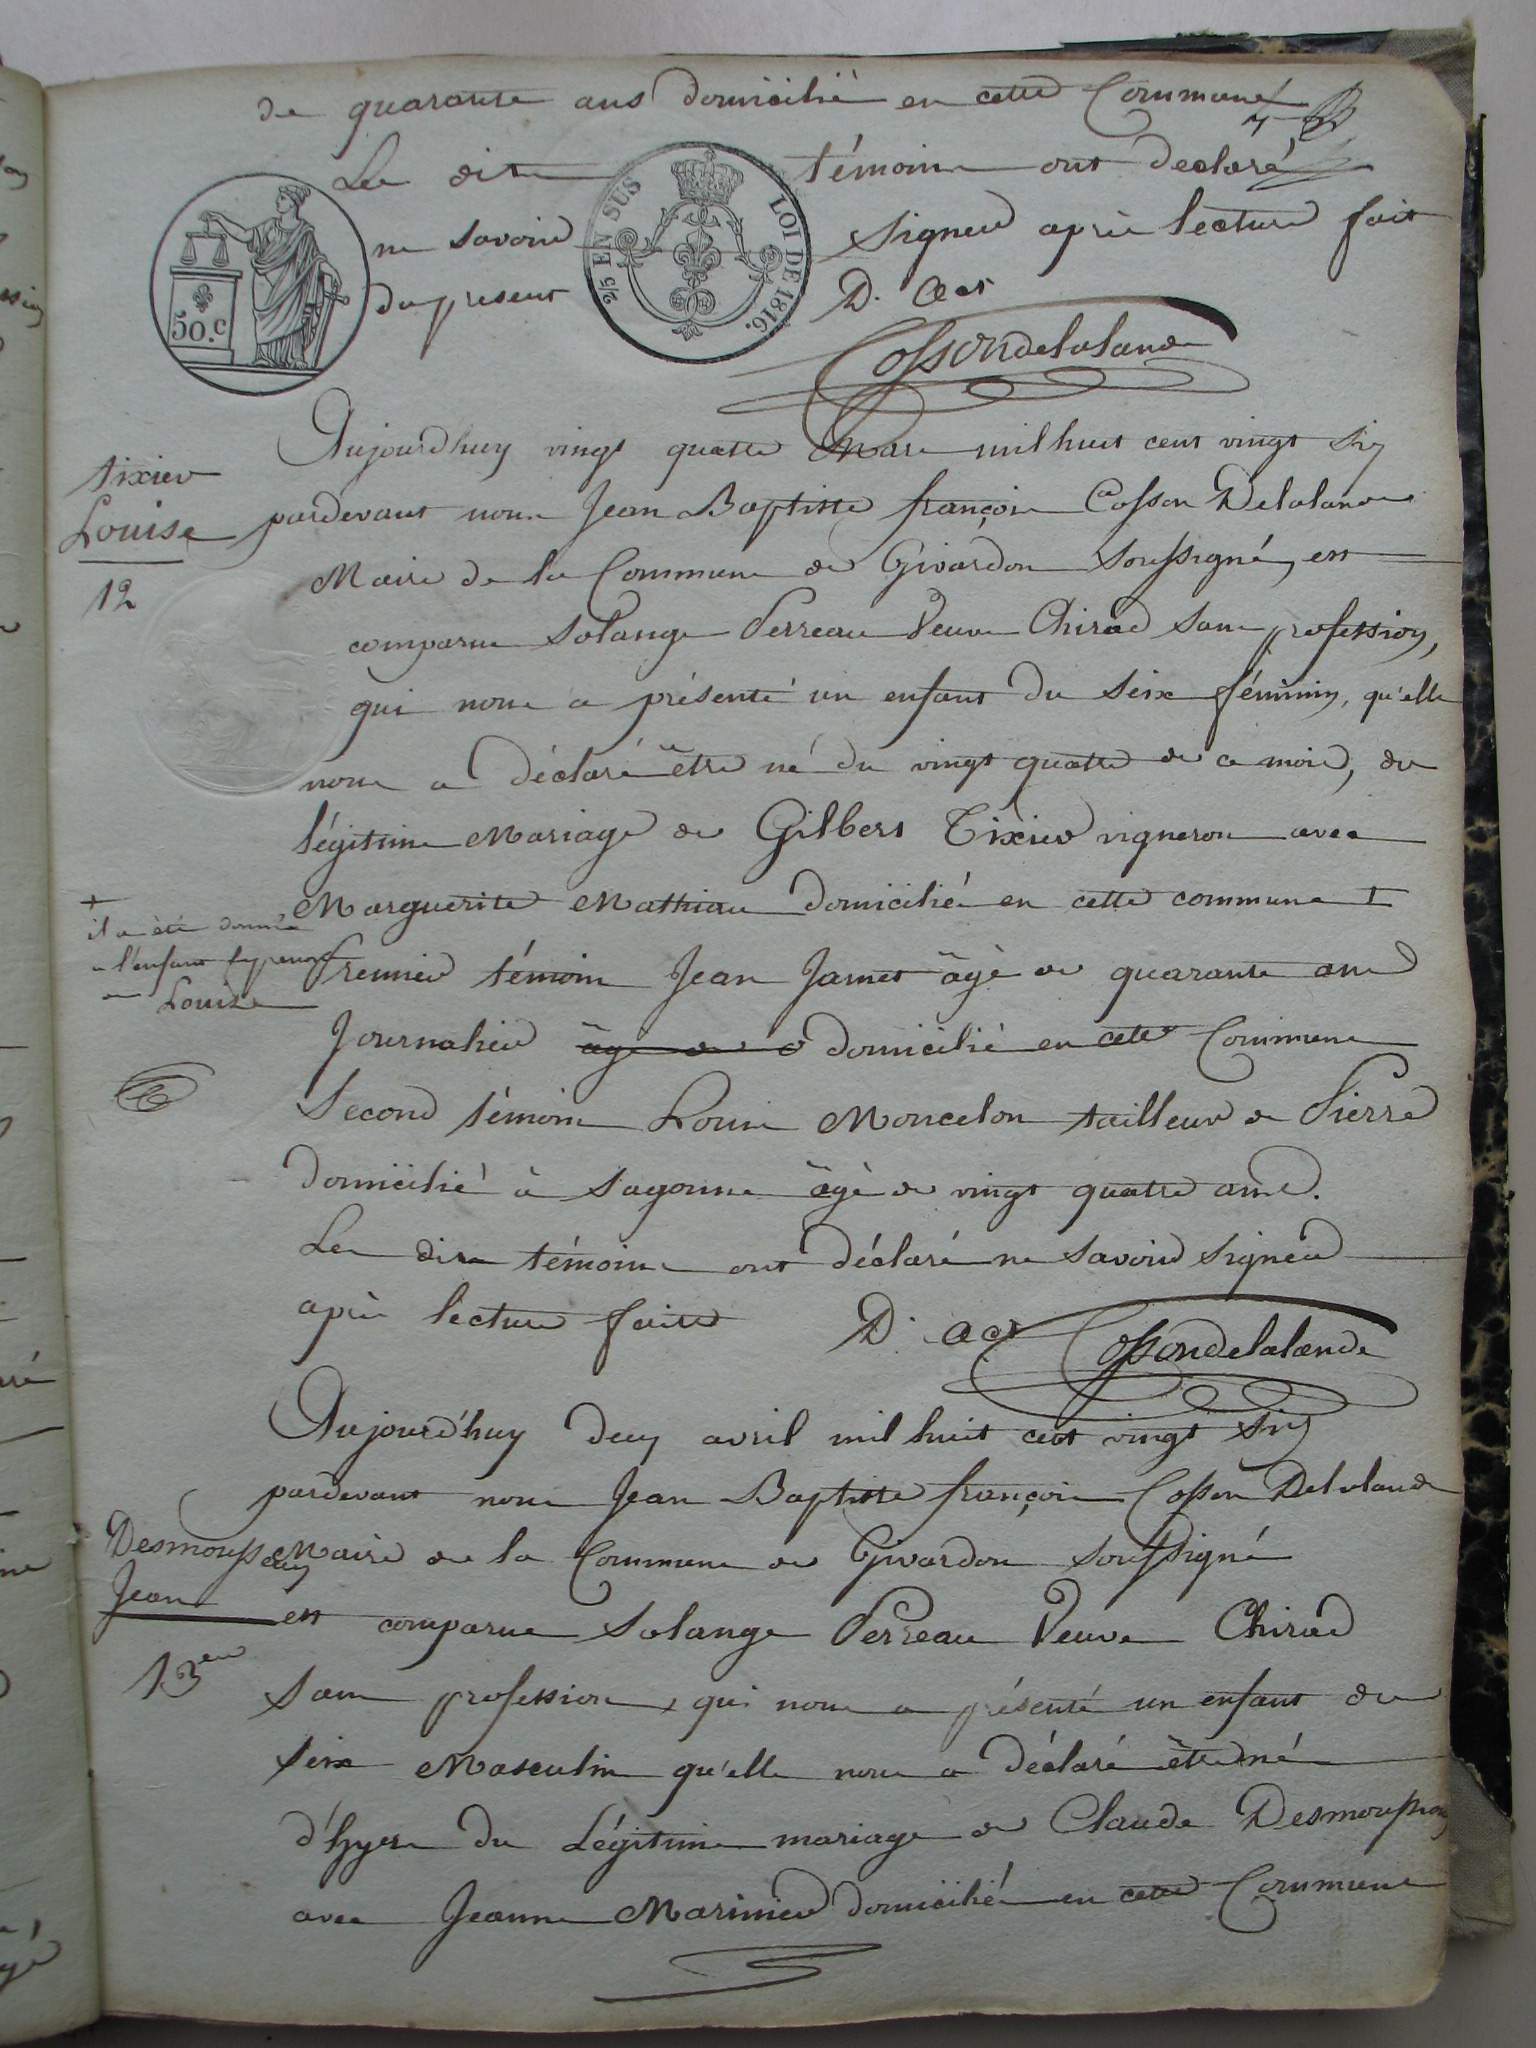 de quarante ans domicilié en cette Commune
Les dits témoins ont declaré
ne savoir signer après lecture fait
du present D. Act
Cossondelalande
2/5 EN SUS LOI DE 1816.
50.c
tixier
Louise
12
Aujourdhuy vingt quatre Mars mil huit cent vingt six
pardevant nous Jean Baptiste françois Cosson Delalande
Maire de la Commune de Givardon soussigné, est
comparue Solange Perreau Veuve Chirad sans profession,
qui nous a présenté un enfant du sexe féminin, qu'elle
nous a déclaré être né du vingt quatre de ce mois, du
légitime Mariage de Gilbert Tixier vigneron avec
Marguerite Mathiau domicilié en cette commune +
+
il a été donné
a l'enfant le prenom
de Louise
Premier témoin Jean Jamet âgé de quarante ans
Journalier âgé de domicilié en cette Commune
Second témoin Louis Moncelon tailleur de Pierre
domicilié à Sagonne âgé de vingt quatre ans.
Les dits témoins ont déclaré ne savoir signer
après lecture faite D. act
Cossondelalande
Aujourd'huy deux avril mil huit cent vingt six
pardevant nous Jean Baptiste françois Cosson Delalande
Desmousseaux
Jean
13eme
Maire de la Commune de Givardon soussigné
est comparue Solange Perreau Veuve Chirad
sans profession, qui nous a présenté un enfant du
sexe Masculin qu'elle nous a déclaré être né
d'hyer du Légitime mariage de Claude Desmousseaux
avec Jeanne Marinier domicilié en cette Commune